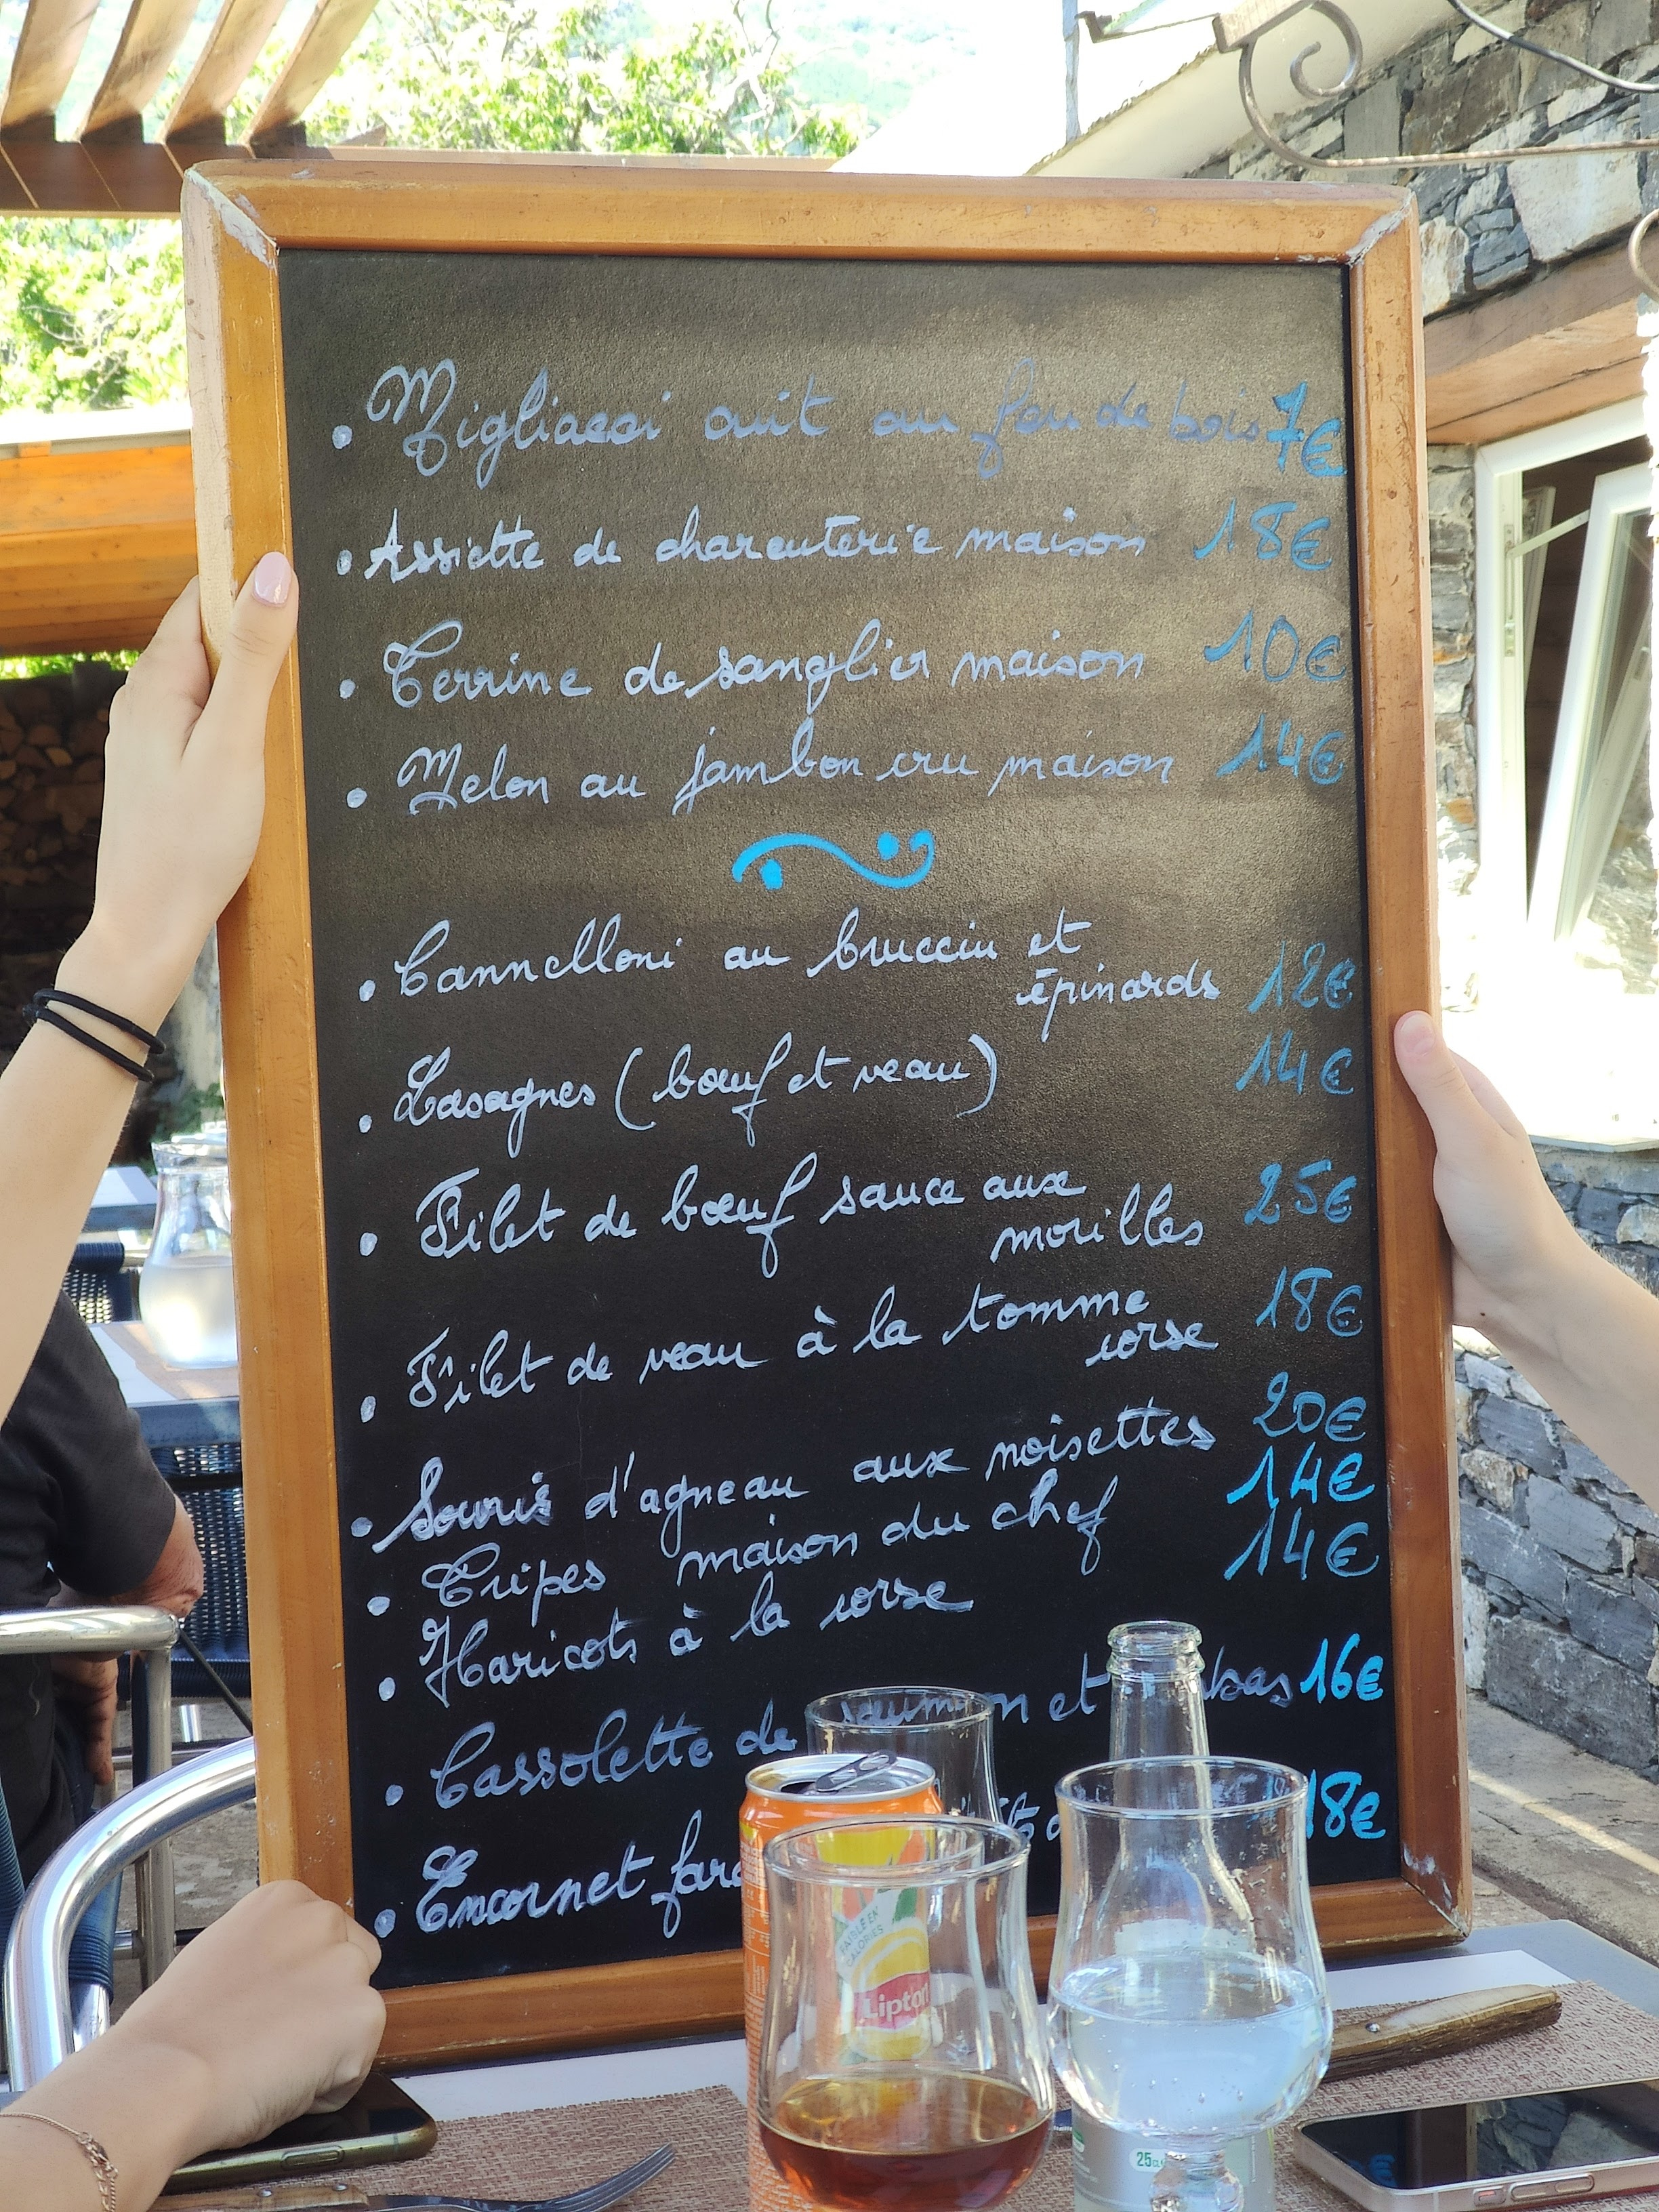 • Migliacci cuit au feu de bois 7€
• Assiette de charcuterie maison 18€
• Terrine de sanglier maison 10€
• Melon au jambon cru maison 14€
• Cannelloni au brucciu et
épinards 12€
• Lasagnes (bœuf et veau) 14€
• Filet de bœuf sauce aux 25€
morilles
• Filet de veau à la tomme 18€
corse
• Souris d'agneau aux noisettes 20€
• Tripes maison du chef 14€
• Haricots à la corse 14€
• Cassolette de saumon et 16€
• Encornet 18€
FAIBLE EN
CALORIES
Lipton
25cl